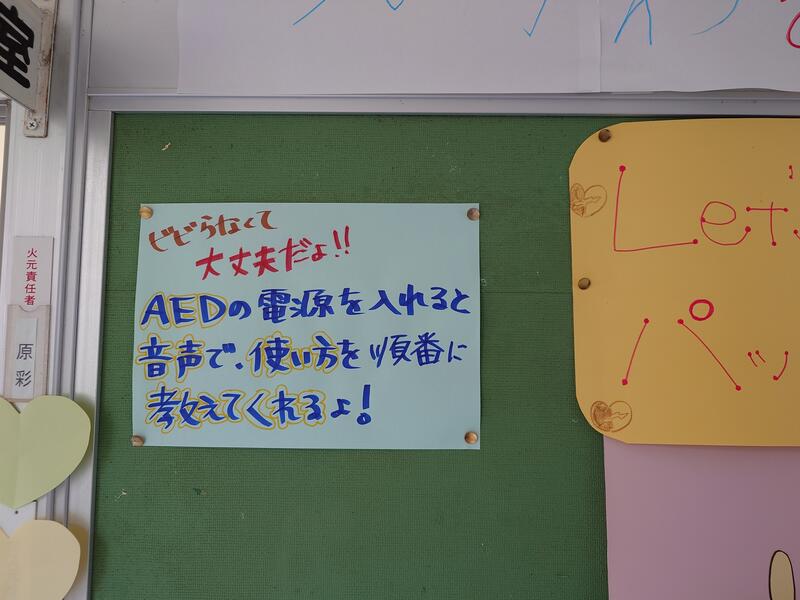 室
火元責任者
原彩
ビビらなくて
大丈夫だよ!!
AEDの電源を入れると
音声で、使い方を順番に
教えてくれるよ!
Let's
パッ